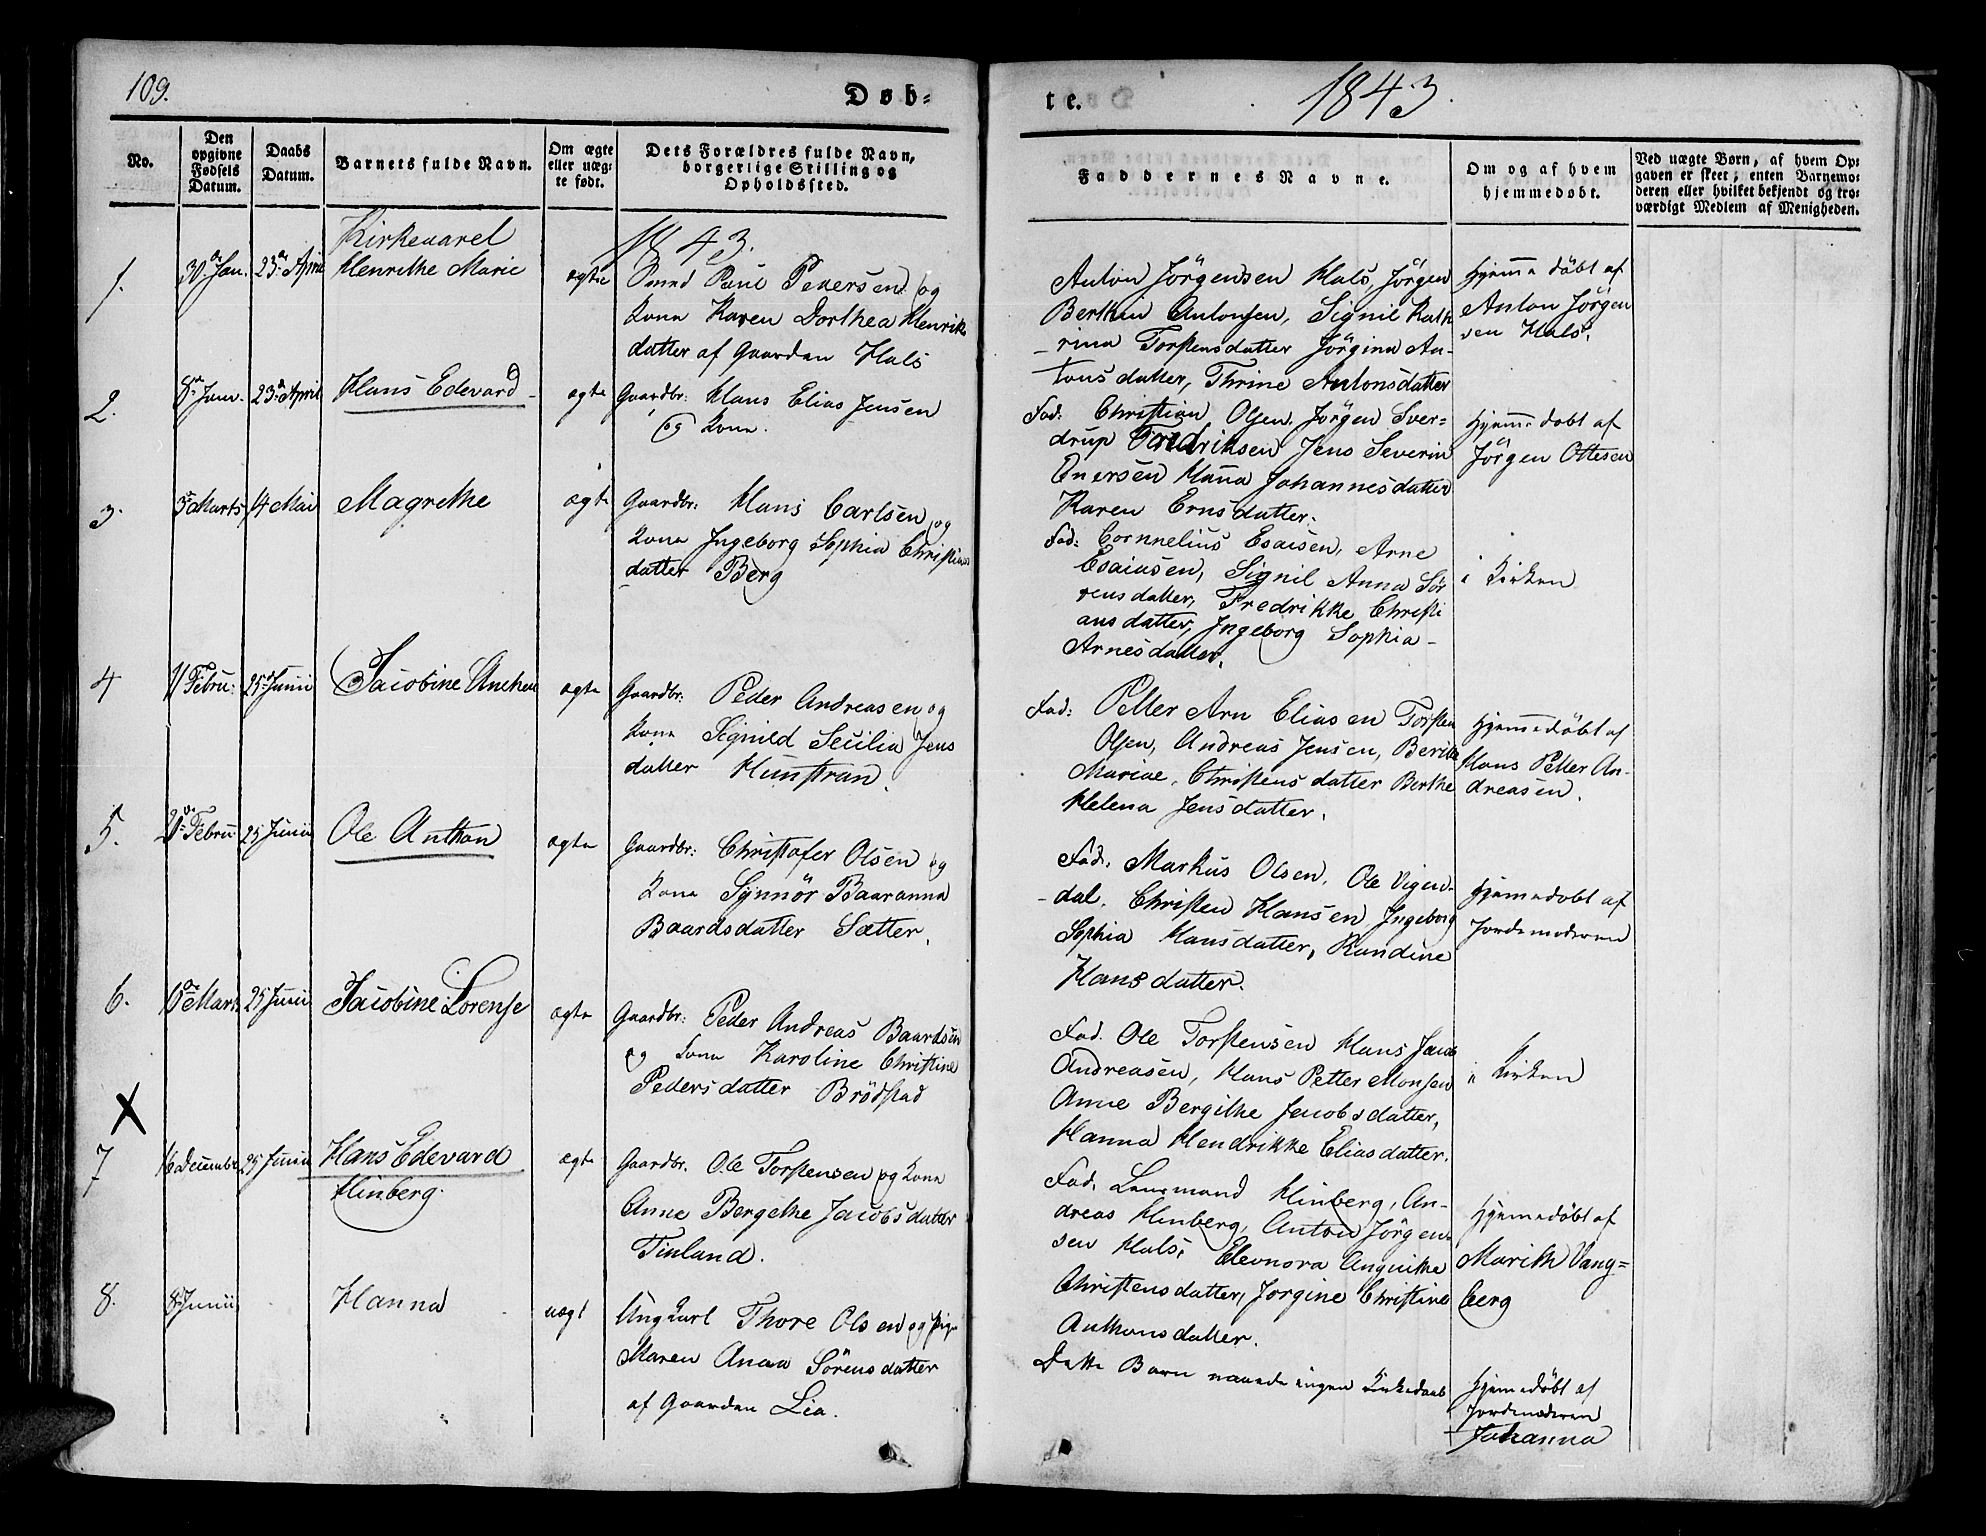 109.
Døb=
te.
1843.
No.
Den
opgivne
Fødsels
Datum.
Daabs
Datum.
Barnets fulde Navn.
Om ægte
eller uæg-
te født.
Dets Forældres fulde Navn,
borgerlige Stilling og
Opholdssted.
Faddernes Navne.
Om og af hvem
hjemmedøbt.
Ved uægte Børn, af hvem Op-
gaven er skeet; enten Barnemo-
deren eller hvilket bekjendt og tro-
værdigt Medlem af Menigheden.
Kirkevarel
1843.
1.
30. Jan.
23de April
Henrikke Marie
ægte
Paul Pedersen og
Kone Karen Dorthea Henriks
datter af Gaarden Hals
Anton Jörgensen Hals, Jörgen
Berthin Antonsen, Signil Kath
-rina Torstensdatter Jörgina An-
tonsdatter, Thrine Antonsdatter
Hjemmedöbt af
Anton Jörgen
sen Hals.
2.
8de Janv.
23de April
Hans Edevard
ægte
Gaardbr: Hans Elias Jensen
og Kone.
Fad: Christian Olsen, Jörgen Sver=
drup Fredriksen Jens Severin
Enersen Hana Johannesdatter
Karen Ernsdatter.
Hjemmedøbt af
Jörgen Ottesen
3.
3de Marts
14 Mai
Magrethe
ægte
Gaardbr: Hans Carlsen og
Kone Ingeborg Sophia Christians
datter Berg
Fad: Cornnelius Esaisen, Arne
Esaiasen, Signil Anna Sör
rensdatter, Fredrikke Christi
ansdatter, Ingeborg Sophia
Arnesdatter.
i Kirken
4
11 Febru:
25de Junii
Jacobine Anchen
ægte
Gaardbr: Peder Andreasen og
Kone Signild Secilia Jens
datter Hunstran.
Fad: Petter Arn Eliasen Torsten
Olsen, Andreas Jensen, Berith
Mariae, Christensdatter Berthe
Helena Jensdatter.
Hjemmedöbt af
Hans Petter An-
dreasen.
5.
Febru
25 Junii
Ole Anthon
ægte
Gaardbr: Christofer Olsen og
Kone Synnör Baaranna
Baardsdatter Sætter.
Fad. Markus Olsen. Ole Vigen-
-dal. Christen Hansen Ingeborg
Sophia Hansdatter, Randine
Hansdatter.
Hjemmedöbt af
Jordemoderen
6.
Mart.
25 Junii
Jacobine Lorense
ægte
Gaardbr: Peder Andreas Baardsen
og Kone Karoline Christine
Pedersdatter Brödstad
Fad. Ole Torstensen Hans Jacob
Andreasen, Hans Petter Monsen
Anne Bergithe Jacobsdatter,
Hanna Hendrikke Eliasdatter.
i Kirken
X
7
16 Decembr
25 Junii
Hans Edevard
Hinberg.
ægte
Gaardbr. Ole Torstensen og Kone
Anne Bergethe Jacobsdatter
Finland.
Fad. Lensmand Hinberg, An-
dreas Hinberg, Anton Jörgen-
sen Hals, Eleonora Angnithe
Christensdatter, Jorgine Christine
Anthonsdatter.
Hjemmedöbt af
Marith Vang=
berg
8.
8de Junii
Hanna
uægt
Ungkarl Thore Olsen og Pige
Maren Anna Sörensdatter
af Gaarden Lia.
Dette Barn naaede ingen Kirkedaab
Hjemmedöbt af
Jordemoderen
Johanna